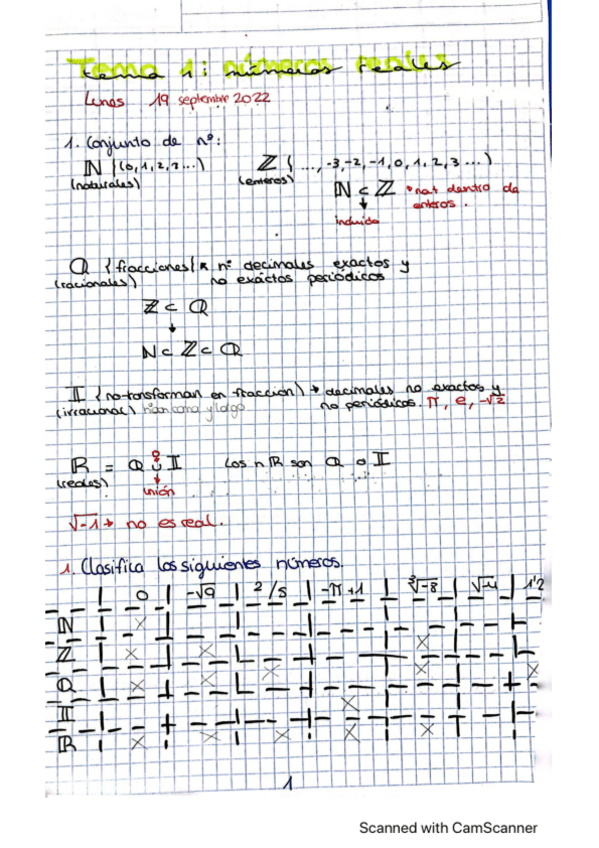 Tema 1: números reales
Lunes 19 septiembre 2022
1. Conjunto de nº:
ℕ {(0,1,2,3...) ℤ {...,-3,-2,-1,0,1,2,3...)
(naturales) (enteros)
ℕ ⊂ ℤ *nat dentro de
enteros.
↓
incluido
ℚ {fracciones} nº decimales exactos y
(racionales) no exactos periódicos
ℤ ⊂ ℚ
↓
ℕ ⊂ ℤ ⊂ ℚ
𝕀 {no transforman en fracción) → decimales no exactos y
(irracional) no periódicos. π, e, -√2
ℝ = ℚ ∪ 𝕀 Los n ℝ son ℚ o 𝕀
(reales) ↓
unión
√-1 → no es real.
1. Clasifica los siguientes números.
0 | -√9 | 2/5 | -π+1 | ³√-8 | √-4 | 1'2
ℕ X
ℤ X X X
ℚ X X X X X
𝕀 X
ℝ X X X X X
1
Scanned with CamScanner